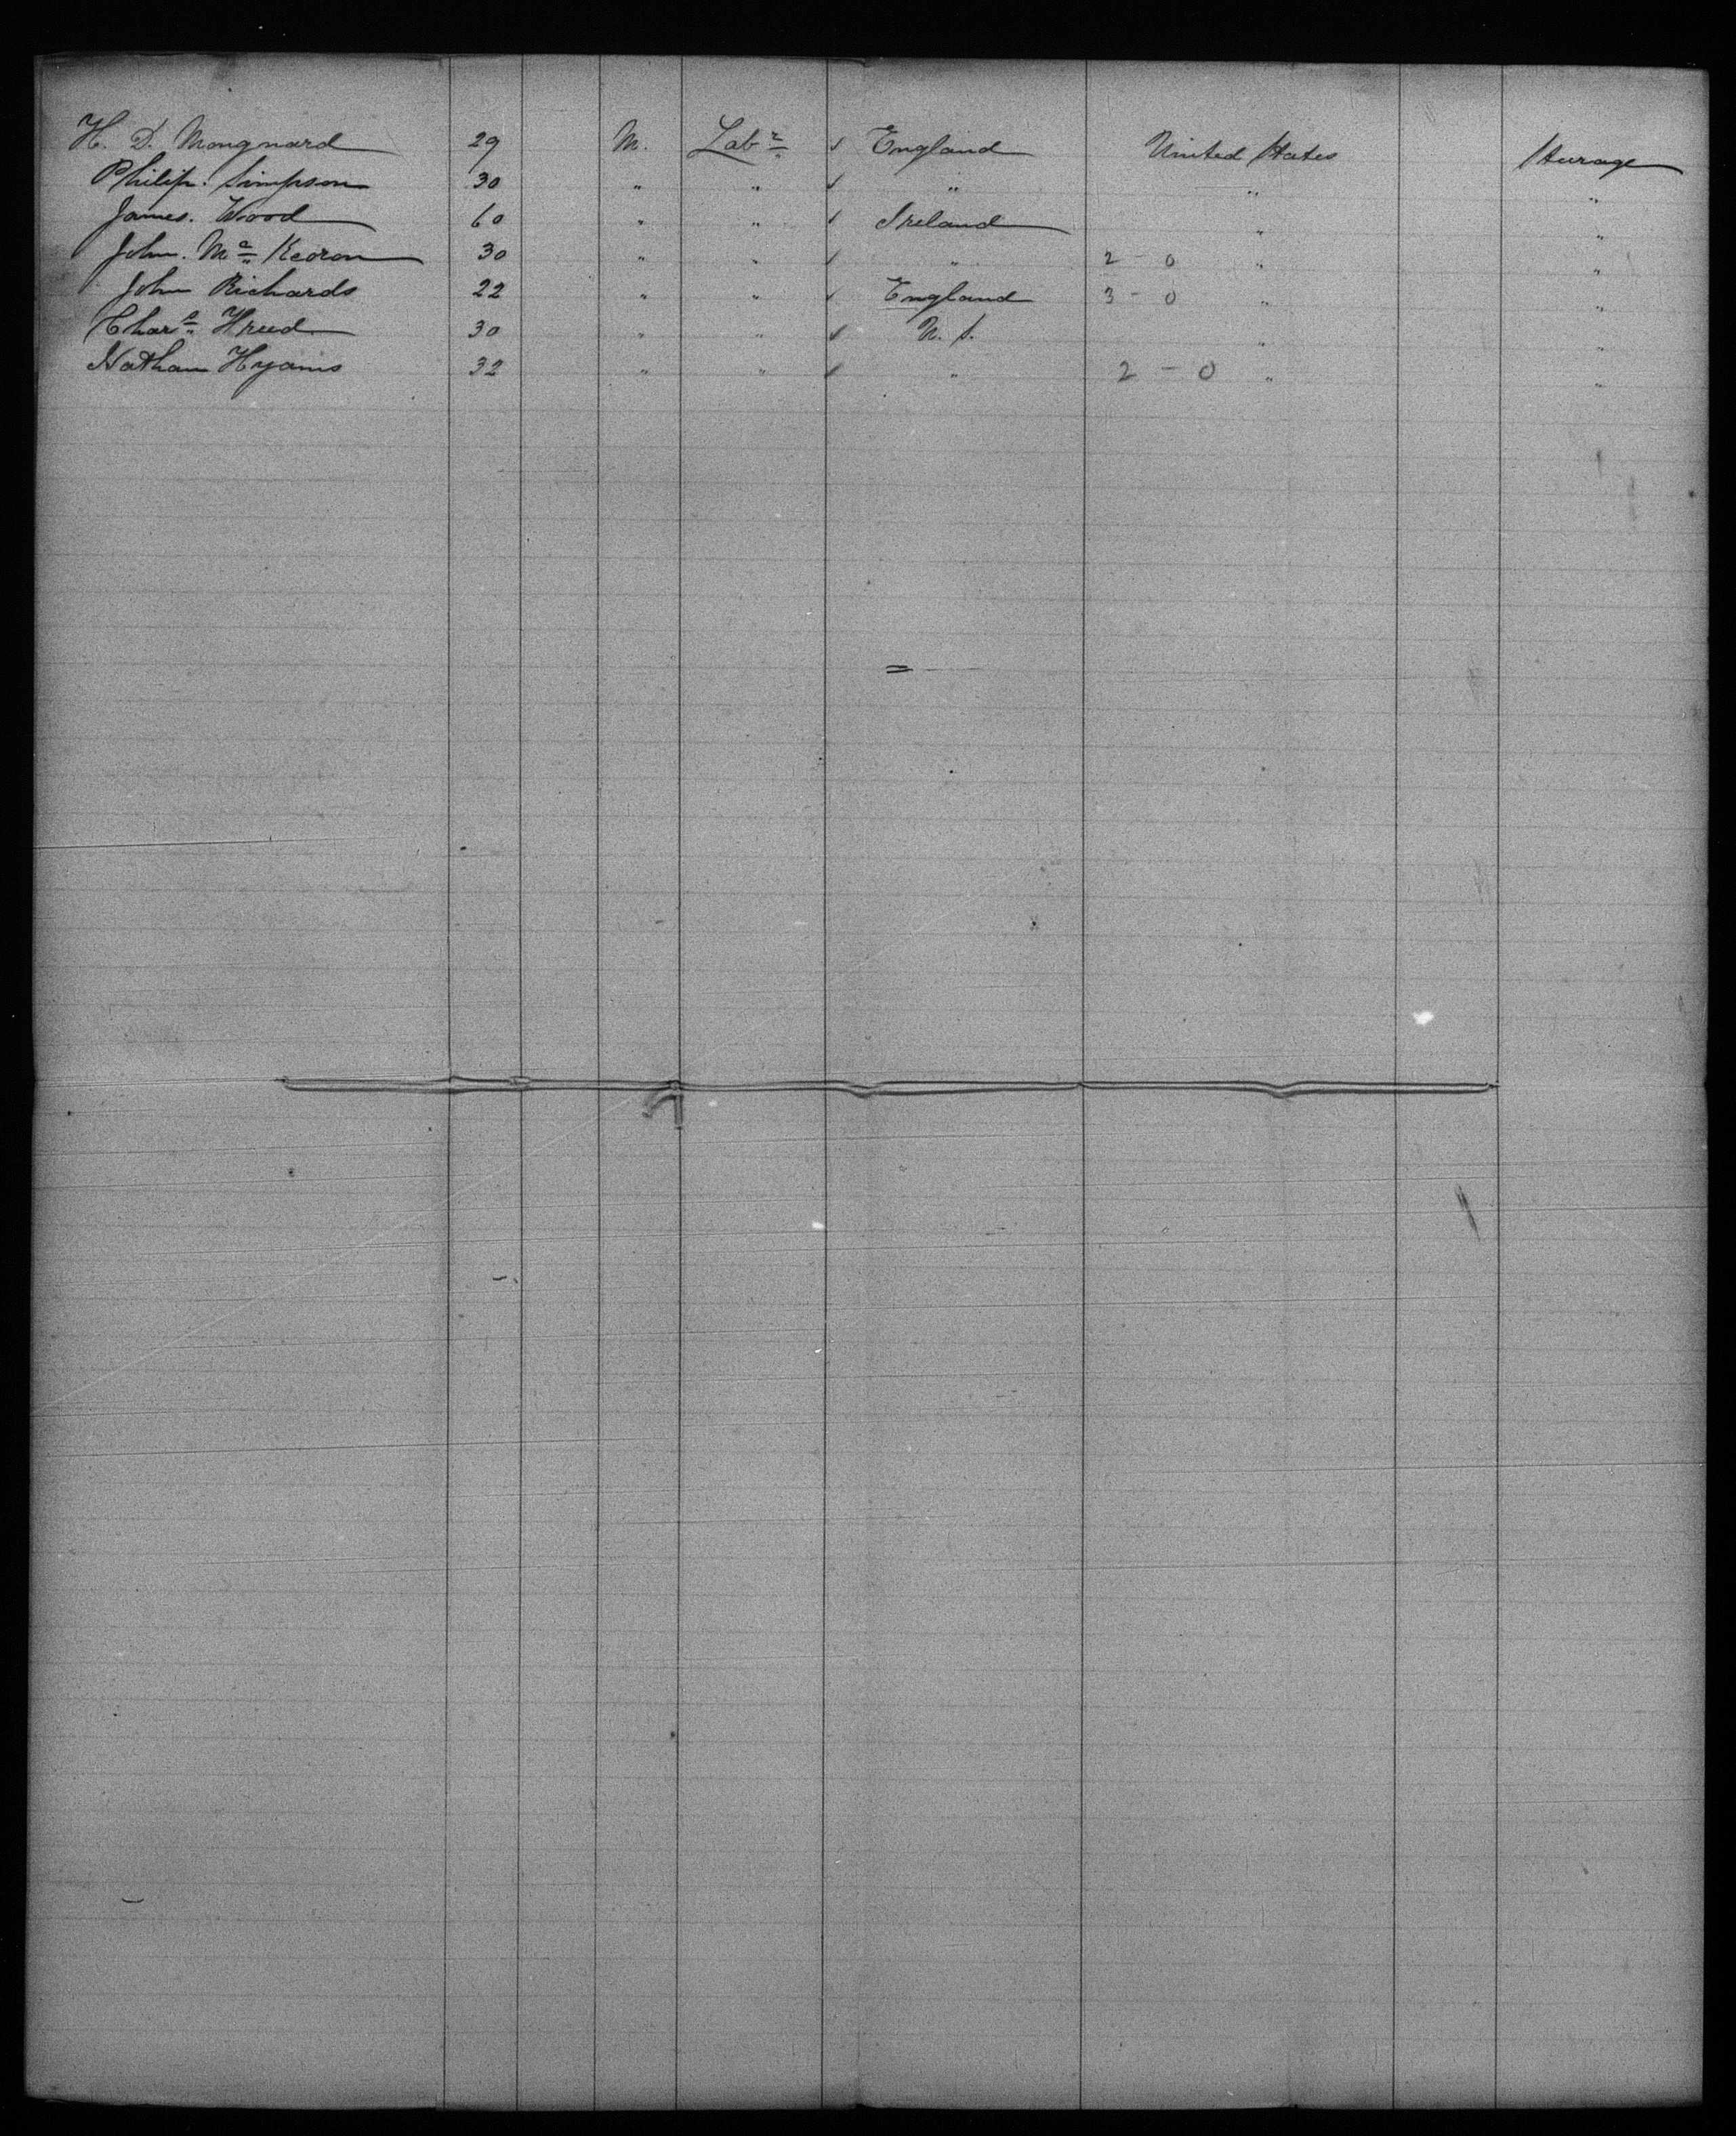 H. D. Mongnard 29 M. Labr s England United States Steerage
Philip. Simpson 30 " " s " " "
James. Wood 60 " " s Ireland " "
John. Mc Keoron 30 " " s " 2 - 0 " "
John Richards 22 " " s England 3 - 0 " "
Chars Hreed 30 " " s U. S. " "
Nathan Hyams 32 " " s " 2 - 0 " "